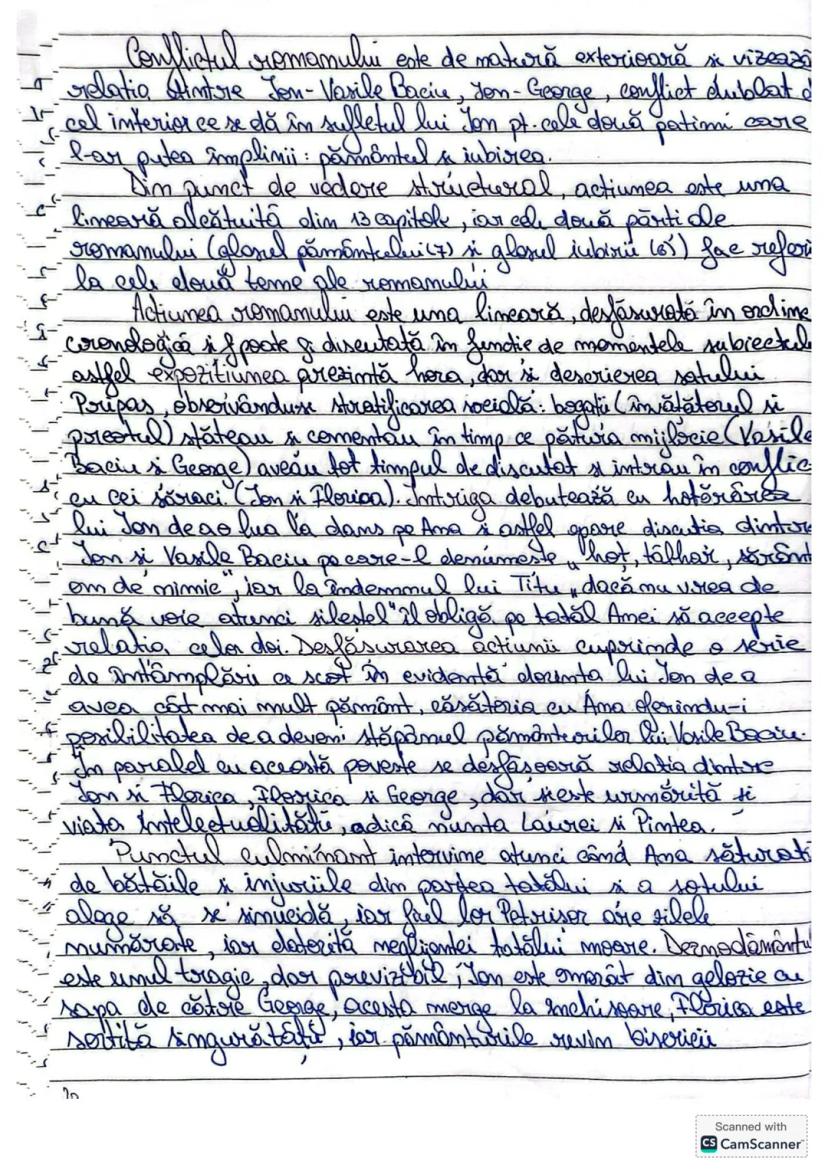 Conflictul romanului este de natură exterioară și vizează
relația dintre Ion-Vasile Baciu, Ion-George, conflict dublat d
cel interior ce se dă în sufletul lui Ion pt. cele două patimi care
l-ar putea împlinii: pământul și iubirea.
Din punct de vedere structural, acțiunea este una
lineară alcătuită din 13 capitole, iar cele două părți ale
romanului (glasul pământului (7) și glasul iubirii (6)) fac referi
la cele două teme ale romanului
Acțiunea romanului este una lineară, desfășurată în ordine
cronologică și poate fi discutată în funcție de momentele subiectul
astfel expozițiunea prezintă hora, dar și descrierea satului
Pripas, observându-se stratificarea socială: bogații (învățătorul și
preotul) stăteau și comentau în timp ce pătura mijlocie (Vasile
Baciu și George) aveau tot timpul de discutat și intrau în conflic
cu cei săraci. (Ion și Florica). Intriga debutează cu hotărârea
lui Ion de a o lua la dans pe Ana și astfel apare discuția dintre
Ion și Vasile Baciu pe care-l denumește „hoț, tâlhar, sărânt
om de nimic", iar la îndemnul lui Titu „dacă nu vrea de
bună voie atunci silește-l" îl obligă pe tatăl Anei să accepte
relația celor doi. Desfășurarea acțiunii cuprinde o serie
de întâmplări ce scot în evidență dorința lui Ion de a
avea cât mai mult pământ, căsătoria cu Ana oferindu-i
posibilitatea de a deveni stăpânul pământurilor lui Vasile Baciu.
În paralel cu această poveste se desfășoară relația dintre
Ion și Florica, Florica și George, dar și este urmărită și
viața intelectualității, adică nunta Laurei și Pintea.
Punctul culminant intervine atunci când Ana săturat
de bătăile și injuriile din partea tatălui și a soțului
alege să se sinucidă, iar fiul lor Petrișor are zilele
numărate, iar datorită neglijenței tatălui moare. Deznodământu
este unul tragic, dar previzibil, Ion este omorât din gelozie cu
sapa de către George, acesta merge la închisoare, Florica este
sortită singurătății, iar pământurile revin bisericii
Scanned with
CS CamScanner